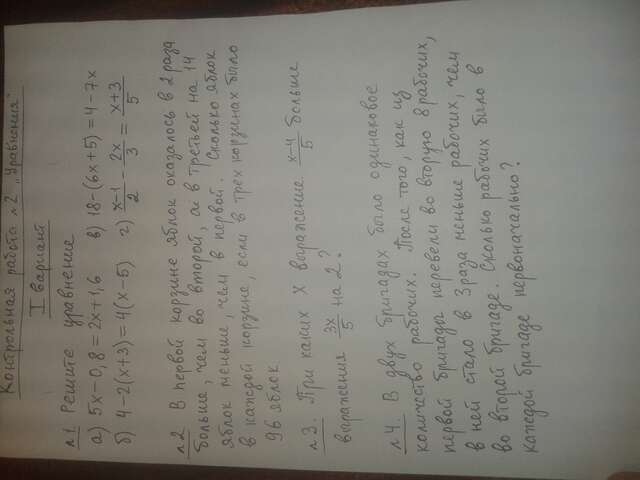 Контрольная работа №2 „Уравнения"
I вариант
№1 Решите уравнение
а) 5x-0,8=2x+1,6 в) 18-(6x+5)=4-7x
б) 4-2(x+3)=4(x-5) г) \frac{x-1}{2} - \frac{2x}{3} = \frac{x+3}{5}
№2 В первой корзине яблок оказалось в 2 раза
больше, чем во второй, а в третьей на 14
яблок меньше, чем в первой. Сколько яблок
в каждой корзине, если в трёх корзинах было
96 яблок
№3. При каких X выражение \frac{x-4}{5} больше
выражения \frac{3x}{5} на 2?
№4. В двух бригадах было одинаковое
количество рабочих. После того, как из
первой бригады перевели во вторую 8 рабочих,
в ней стало в 3 раза меньше рабочих, чем
во второй бригаде. Сколько рабочих было в
каждой бригаде первоначально?